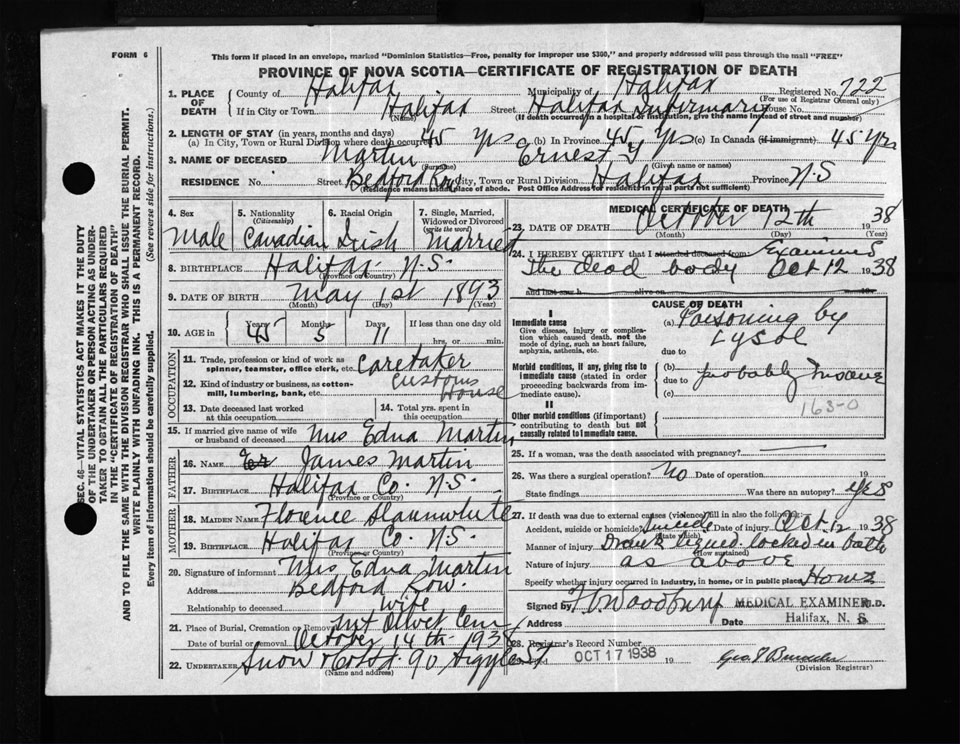 FORM 6
This form if placed in an envelope, marked "Dominion Statistics—Free, penalty for improper use $300," and properly addressed will pass through the mail "FREE"
PROVINCE OF NOVA SCOTIA—CERTIFICATE OF REGISTRATION OF DEATH
SEC. 46—VITAL STATISTICS ACT MAKES IT THE DUTY
OF THE UNDERTAKER OR PERSON ACTING AS UNDER-
TAKER TO OBTAIN ALL THE PARTICULARS REQUIRED
IN THE "CERTIFICATE OF REGISTRATION OF DEATH"
AND TO FILE THE SAME WITH THE DIVISION REGISTRAR WHO SHALL ISSUE THE BURIAL PERMIT.
WRITE PLAINLY WITH UNFADING INK. THIS IS A PERMANENT RECORD.
Every item of information should be carefully supplied. (See reverse side for instructions.)
1. PLACE OF DEATH County of Halifax Municipality of Halifax Registered No. 722
(For use of Registrar General only)
If in City or Town Halifax Street Halifax Infirmary House No.
(Name) (If death occurred in a hospital or institution, give the name instead of street and number)
2. LENGTH OF STAY (in years, months and days)
(a) In City, Town or Rural Division where death occurred 45 yrs (b) In Province 45 yrs (c) In Canada (if immigrant) 45 yrs
3. NAME OF DECEASED Martin Ernest
(Surname) (Given name or names)
RESIDENCE No. Street Bedford Row City, Town or Rural Division Halifax Province N.S
(Residence means usual place of abode. Post Office Address for residents in rural parts not sufficient)
4. Sex 5. Nationality (Citizenship) 6. Racial Origin 7. Single, Married, Widowed or Divorced (write the word)
Male Canadian Irish Married
8. BIRTHPLACE Halifax N.S.
(Province or Country)
9. DATE OF BIRTH May 1st 1893
(Month) (Day) (Year)
10. AGE in Years Months Days If less than one day old
45 5 11 hrs. or min.
OCCUPATION
11. Trade, profession or kind of work as spinner, teamster, office clerk, etc. Caretaker
12. Kind of industry or business, as cotton-mill, lumbering, bank, etc. Customs House
13. Date deceased last worked at this occupation
14. Total yrs. spent in this occupation
15. If married give name of wife or husband of deceased Mrs Edna Martin
FATHER
16. NAME James Martin
17. BIRTHPLACE Halifax Co. N.S.
(Province or Country)
MOTHER
18. MAIDEN NAME Florence Slaunwhite
19. BIRTHPLACE Halifax Co. N.S.
(Province or Country)
20. Signature of informant Mrs Edna Martin
Address Bedford Row.
Relationship to deceased wife
21. Place of Burial, Cremation or Removal Mt Olivet Cem
Date of burial or removal October 14th 1938
22. UNDERTAKER Snow & Co Ltd. 90 Argyle St
(Name and address)
MEDICAL CERTIFICATE OF DEATH
23. DATE OF DEATH October 12th 38
(Month) (Day) (Year)
24. I HEREBY CERTIFY that I attended deceased from: Examined
The dead body Oct 12 1938
and last saw h alive on 19
CAUSE OF DEATH
I
Immediate cause
Give disease, injury or complication which caused death, not the mode of dying, such as heart failure, asphyxia, asthenia, etc.
(a) Poisoning by
Lysol
due to
Morbid conditions, if any, giving rise to immediate cause (stated in order proceeding backwards from immediate cause).
(b)
due to probably Insane
(c)
163-0
II
Other morbid conditions (if important) contributing to death but not causally related to immediate cause.
25. If a woman, was the death associated with pregnancy?
26. Was there a surgical operation? No Date of operation 19
State findings Was there an autopsy? yes
27. If death was due to external causes (violence) fill in also the following:
Accident, suicide or homicide? Suicide Date of injury Oct 12 1938
(State which)
Manner of injury Drank Lysol locked in bath
(How sustained)
Nature of injury as above
Specify whether injury occurred in industry, in home, or in public place Home
Signed by MEDICAL EXAMINER M.D.
Address Date Halifax, N. S.
28. Registrar's Record Number
OCT 17 1938 19
(Division Registrar)